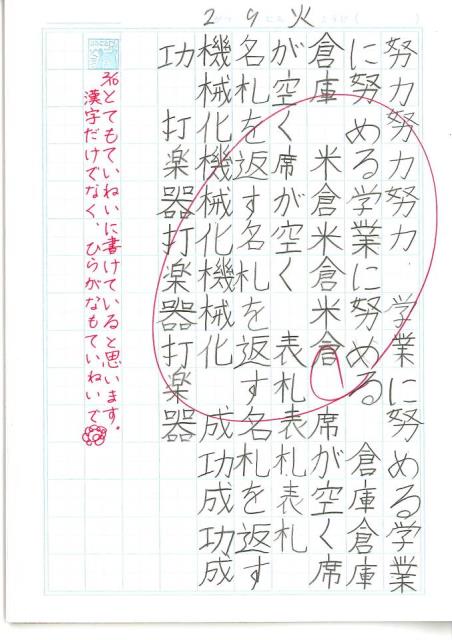 2 9 火
努力努力努力 学業に努める学業
に努める学業に努める 倉庫倉庫
倉庫 米倉米倉米倉 席が空く席
が空く席が空く 表札表札表札
名札を返す名札を返す名札を返す
機械化機械化機械化 成功成功成
功 打楽器打楽器打楽器
2/10とてもていねいに書けていると思います。
漢字だけでなく、ひらがなもていねいで